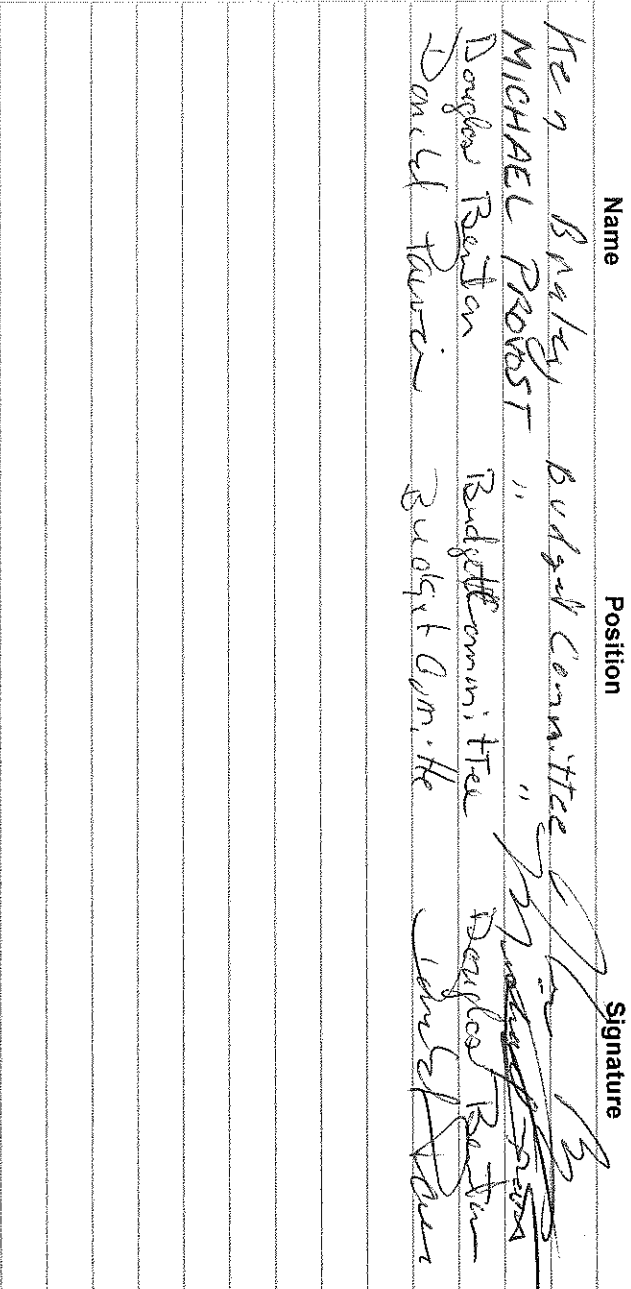 Name Position Signature
Ken Braley Budget Committee
MICHAEL PROVOST " "
Douglas Benton Budget Committee Douglas Benton
Budget Committe